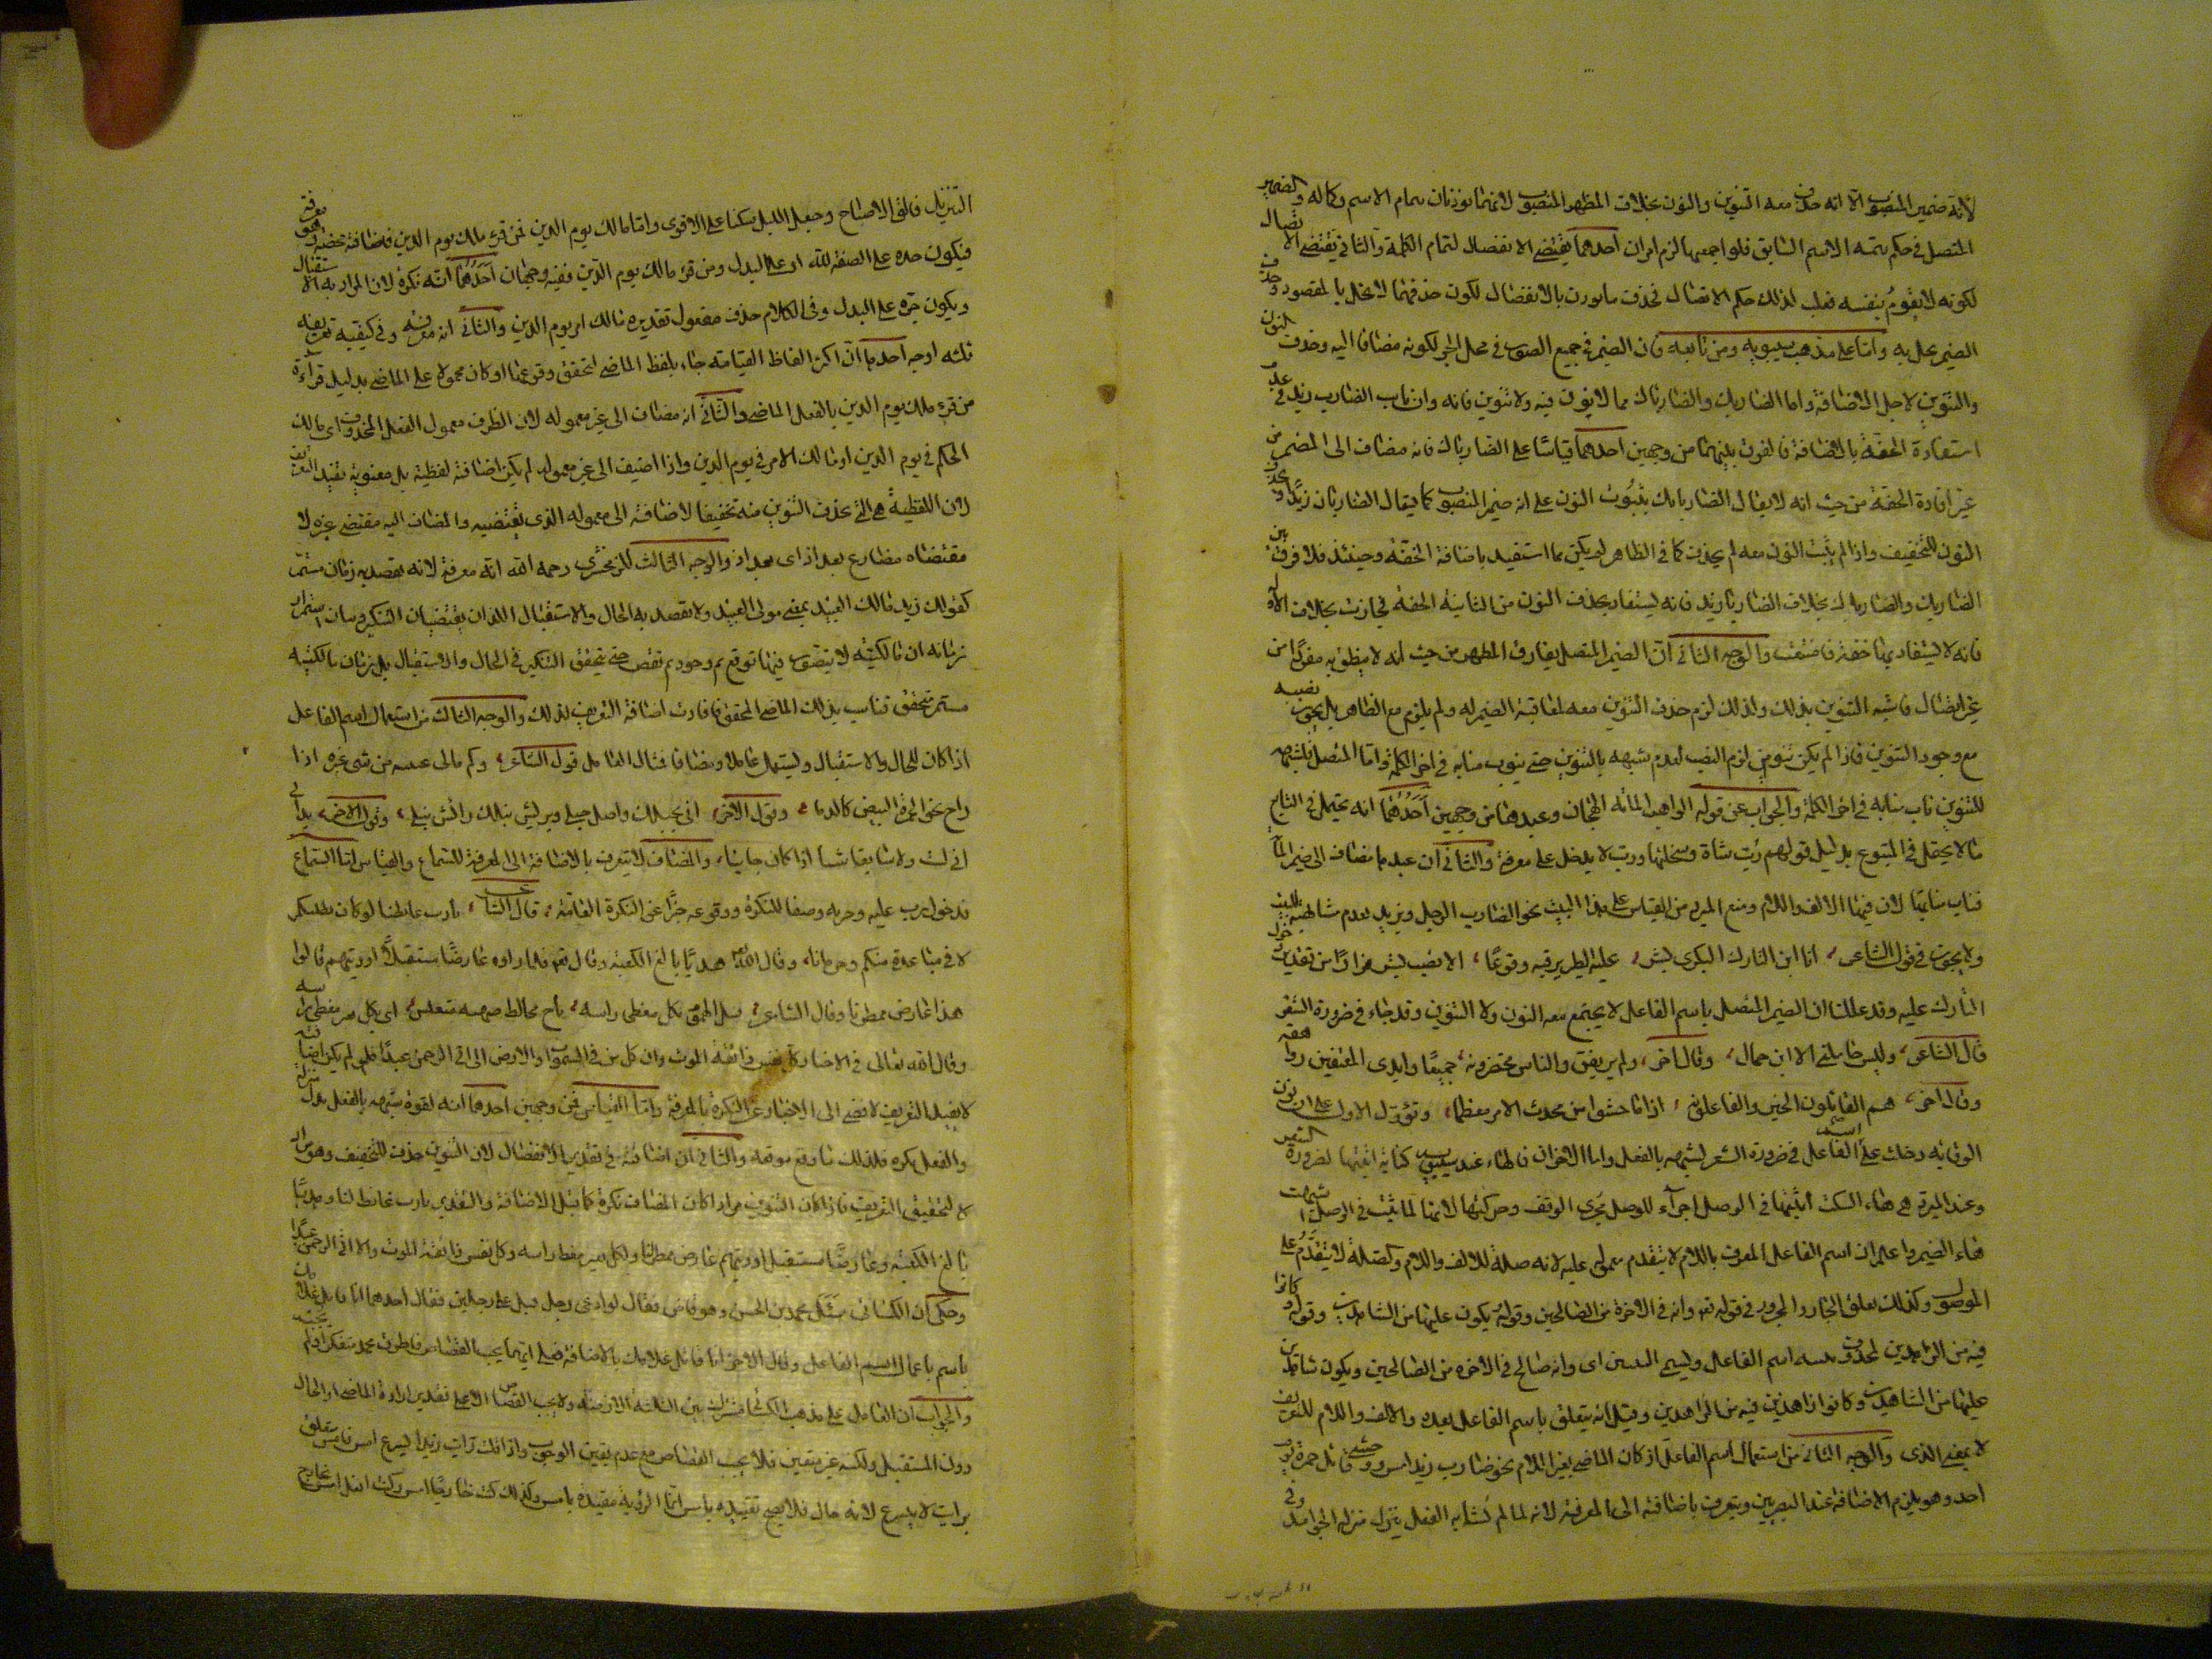 لأنه ضمير المنصوب الا انه حذف معه التنوين والنون بخلاف المظهر المنصوب لانهما يؤذنان بتمام الاسم وكماله والضمير
المتصل في حكم تتمة الاسم السابق فلو اجمعهما لزم امران احدهما يقتضي الانفصال لتمام الكلمة والثاني يقتضي الاتصال
لكونه لا يقوم بنفسه فغلب لذلك حكم الاتصال فحذف ما يؤذن بالانفصال لكون حذفهما لا يخل بالمقصود وحذف
الضمير يخل به واما على مذهب سيبويه ومن تابعه فان الضمير في جميع الصور في محل الجر لكونه مضافا اليه وحذف النون
والتنوين لاجل الاضافة واما الضاربك والضارباك مما لا نون فيه ولا تنوين فانه وان ناب الضارب زيد في عدم
استفادة الخفة بالاضافة فالفرق بينهما من وجهين احدهما قياسا على الضارباك فانه مضاف الى المضمر من
غير افادة الخفة من حيث انه لا يقال الضاربانك بثبوت النون على انه ضمير المنصوب كما يقال الضاربان زيدا وبحذف
النون للتخفيف واذا لم يثبت النون معه لم يحذف كما في الظاهر لم يكن مما استفيد باضافة الخفة وحينئذ فلا فرق بين
الضاربك والضارباك بخلاف الضاربا زيد فانه يستفاد بحذف النون من التثنية الخفة فجازت بخلاف الاول
فانه لا يستفاد بها خفة فامتنعت والوجه الثاني ان الضمير المتصل يفارق المظهر من حيث انه لا ينطق به مفردا من
غير اتصال فاشبه التنوين بذلك ولذلك لزم حذف التنوين معه لمعاقبة الضمير له ولم يلزم مع الظاهر بل يجوز نصبه
مع وجود التنوين فاذا لم يكن تنوين لزم النصب لعدم شبهه بالتنوين حتى ينوب منابه في اخر الكلمة واما المتصل فلشبهه
للتنوين ناب منابه في اخر الكلمة والجواب عن قوله الواهب المائة الهجان وعبدها من وجهين احدهما انه يحتمل في التابع
ما لا يحتمل في المتبوع بدليل قولهم رب شاة وسخلتها ورب لا يدخل على معرفة والثاني ان عبدها مضاف الى ضمير المائة
فناب منابها لان فيها الالف واللام ومنع المبرد من القياس على هذا البيت نحو الضارب الرجل وزيد لعدم مشابهته للبيت
ولا يجوز في قول الشاعر انا ابن التارك البكري بشر عليه الطير ترقبه وقوعا الا نصب بشر فرارا من تقدير دخول
التارك عليه وقد عللنا ان الضمير المتصل باسم الفاعل لا يجتمع معه النون ولا التنوين وقد جاء في ضرورة الشعر
قال الشاعر وليس حاملني الا ابن حمال وقال اخر ولم يرتفق والناس محتضرونه جميعا وايدي المعتفين رواهقه
وقال اخر هم القائلون الخير والفاعلونه اذا ما خشوا من محدث الامر معظما وتؤول الاول على ان نون
الوقاية دخلت على اسم الفاعل في ضرورة الشعر لشبهه بالفعل واما الاخران فالهاء عند سيبويه كناية اثبتها لضرورة الشعر
وعند المبرد هي هاء السكت اثبتها في الوصل اجراء للوصل مجرى الوقف وحركتها لانها لما ثبتت في الوصل اشبهت
هاء الضمير واعلم ان اسم الفاعل المعرف باللام لا يتقدم معموله عليه لانه صلة للالف واللام والصلة لا يتقدم على
الموصول وكذلك تعلق الجار والمجرور في قوله تعه وانه في الاخرة من الصالحين وقوله يكون عليها من الشاهدين وقوله وكانوا
فيه من الزاهدين لمحذوف اسم الفاعل ويسمى التبيين اي وانه صالح في الاخرة من الصالحين ويكون شاهدين
عليها من الشاهدين وكانوا زاهدين فيه من الزاهدين وقيل انه يتعلق باسم الفاعل بعده والالف واللام للتعريف
لا بمعنى الذي والوجه الثاني من استعمال اسم الفاعل اذ كان الماضي بغير اللام نحو ضارب زيد امس ووحشي قاتل حمزة يوم
احد وهو يلزم الاضافة عند البصريين ويتعرف باضافته الى المعرفة لانه لما لم يشابه الفعل ينزل منزلة الجوامد وفي
التنزيل فالق الاصباح وجعل الليل سكنا على الاقوى واما مالك يوم الدين فمن قرء ملك يوم الدين فاضافته محضة وهو معرفة
فيكون جره على الصفة لله او على البدل ومن قرء مالك يوم الدين ففيه وجهان احدهما انه نكرة لان المراد به الاستقبال
ويكون جره على البدل وفي الكلام حذف مفعول تقديره مالك امر يوم الدين والثاني انه معرفة وفي كيفية تعريفه
ثلثه اوجه احدها ان اكثر الفاظ القيامة جاء بلفظ الماضي لتحقق وقوعها او كان محمولا على الماضي بدليل قراءة
من قرء ملك يوم الدين بالفعل الماضي والثاني انه مضاف الى غير معموله لان الظرف معمول الفعل المحذوف اي مالك
الحكم في يوم الدين او مالك الامر في يوم الدين واذا اضيف الى غير معموله لم يكن اضافته لفظية بل معنوية تفيد التعريف
لان اللفظية هي التي يحذف التنوين منه تخفيفا لاضافته الى معموله الذي يقتضيه والمضاف اليه مقتضى غيره لا
مقتضاه مضارع بعد اذ اي بعد اذ والوجه الثالث للزمخشري رحمه الله انه معرفة لانه يقصد به زمان مستمر
كقولك زيد مالك العبيد بمعنى مولى العبيد ولا يقصد به الحال والاستقبال اللذان يقتضيان التنكير وبيان استمرار
زمانه ان مالكيته لا يتصور فيها توقع ثم وجود ثم تقض حتى يتحقق التنكير في الحال والاستقبال بل زمان مالكيته
مستمر متحقق فناسب بذلك الماضي المحقق فافادت اضافته التعريف لذلك والوجه الثالث من استعمال اسم الفاعل
اذا كان للحال والاستقبال ويستعمل عاملا ومضافا فمثال العامل قول الشاعر وكم مالئ عينيه من شيء غيره اذا
راح نحو الجمرة البيض كالدما وقول الاخر اني بحبلك واصل حبلي وبريش نبلك رائش نبلي وقول الاخر بدا لي
اني لست ولا سابقا شيئا اذا كان جائيا والمضاف لا يتعرف بالاضافة الى المعرفة للسماع والقياس اما السماع
فدخول رب عليه وجريه وصفا للنكرة ووقوعه خبرا عن النكرة العامة قال الشاعر يارب غابطنا لو كان يطلبكم
لاقى مباعدة منكم وحرمانا وقال الله تعالى هديا بالغ الكعبة وقال تعه فلما راوه عارضا مستقبل اوديتهم قالوا
هذا عارض ممطرنا وقال الشاعر سل الهموم بكل معطي راسه ناج مخالط صهبة متعيس اي بكل بعير معطي راسه
وقال الله تعالى في الاخبار كل نفس ذائقة الموت وان كل من في السموات والارض الا اتي الرحمن عبدا فلو لم يكن اضافته
لا يفيد التعريف لافضى الى الاخبار عن النكرة بالمعرفة واما القياس فمن وجهين احدهما انه لقوة شبهه بالفعل نزل منزلته
والفعل نكرة فلذلك ما وقع موقعه والثاني ان اضافته في تقدير الانفصال لان التنوين حذف للتخفيف وهو مراد
لا لتحقيق التعريف فاذا كان التنوين مرادا كان المضاف نكرة كما قبل الاضافة والتقدير يارب غابط لنا وهديا
بالغا الكعبة وعارضا مستقبلا اوديتهم عارض ممطر لنا وبكل بعير معط راسه وكل نفس ذائقة الموت والا ات الرحمن عبدا
وحكي ان الكسائي سئل محمد بن الحسن وهو قاض فقال لو ادعى رجل قتل على رجلين فقال احدهما انا قاتل غلامك
باسم باعمال اسم الفاعل وقال الاخر انا قاتل غلامك بالاضافة فعلى ايهما يجب القصاص فاطرق محمد متفكرا ولم يجبه
والجواب ان العامل على مذهب الكسائي مشترك بين الثلثة الازمنة ولا يجب القصاص الا على تقدير ارادة الماضي او الحال
دون المستقبل ولكنه غير متعين فلا يجب القصاص مع عدم تعين الوجوب واذا قلت رأيت زيدا يسرع امس فامس متعلق
برايت لا بيسرع لانه حال فلا يصح تقييده بامس انما الرؤية مقيدة بامس وكذلك كنت ضاربا امس وكنت افعل امس